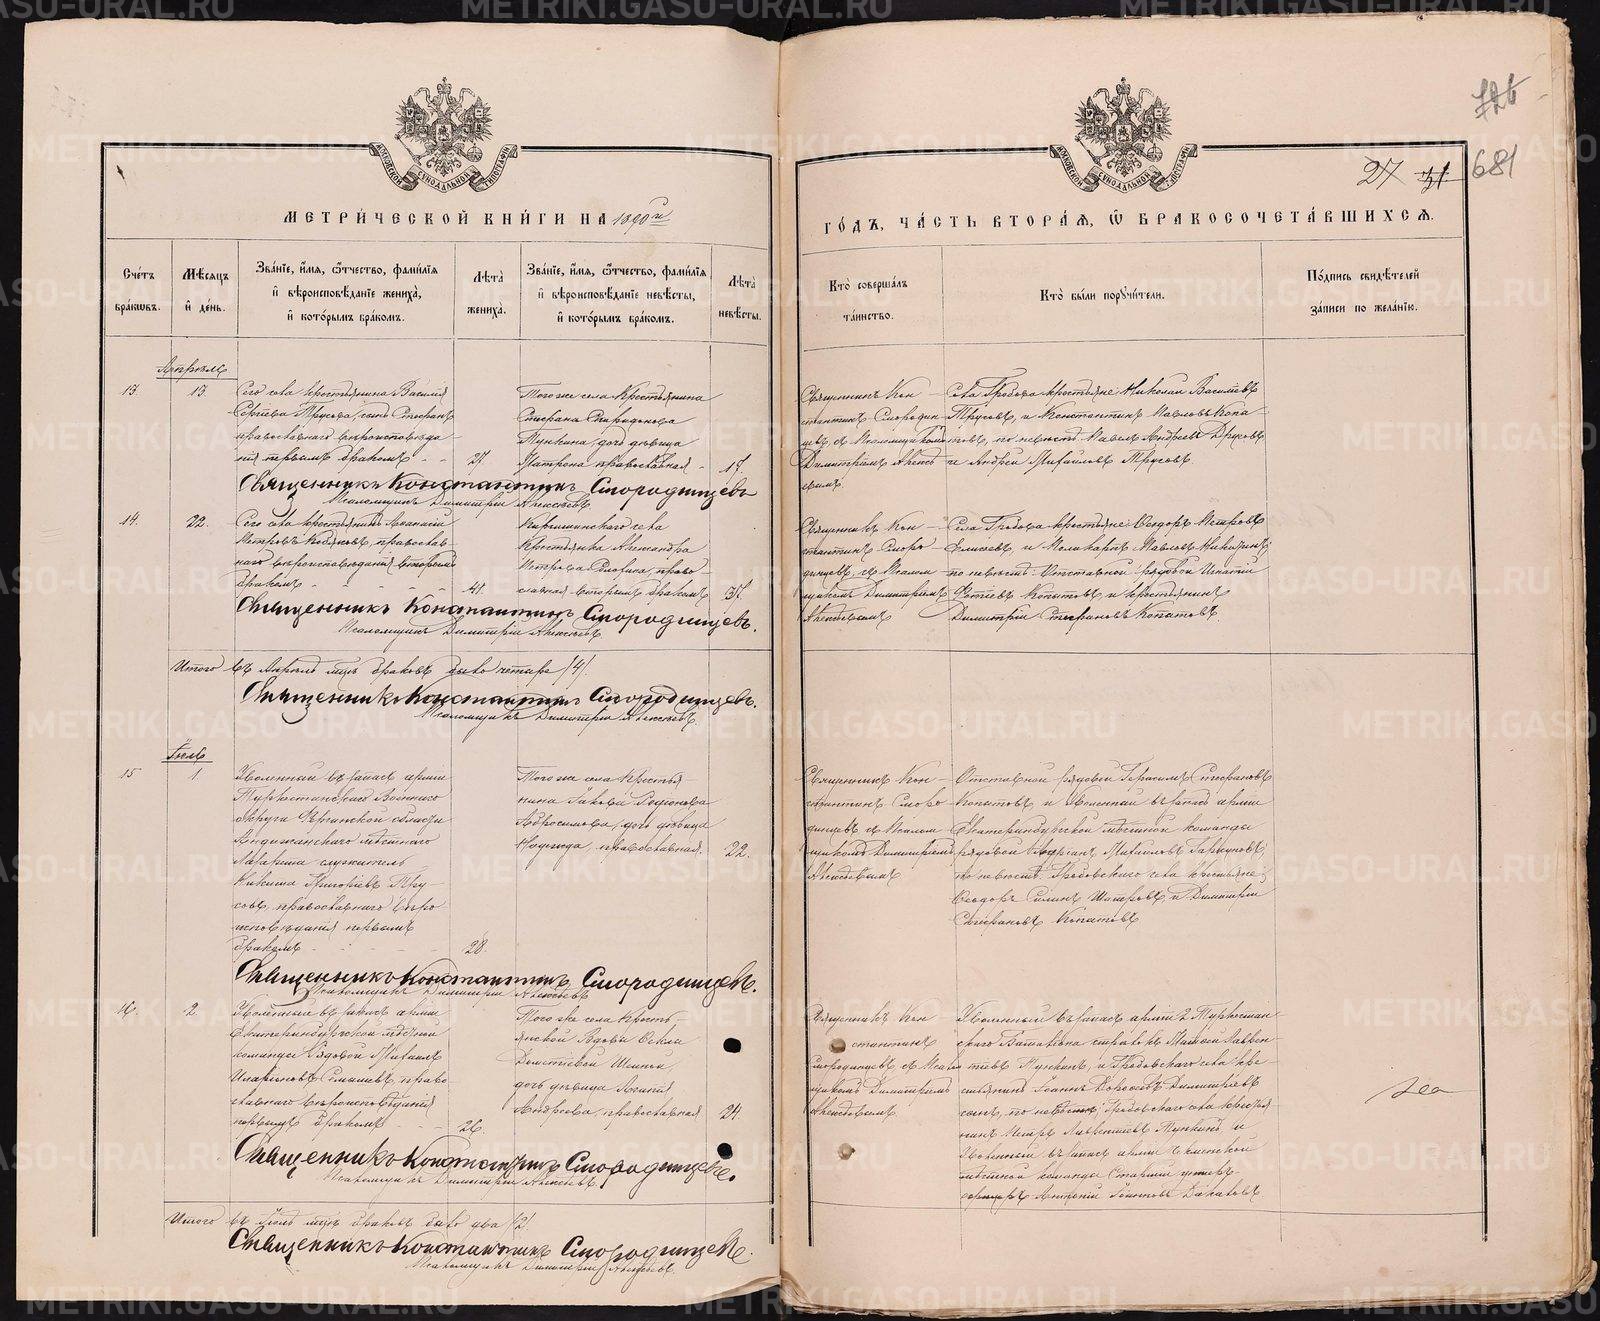 726
27 31 681
МОСКОВСКОЙ СИНОДАЛЬНОЙ ТИПОГРАФІИ
МОСКОВСКОЙ СИНОДАЛЬНОЙ ТИПОГРАФІИ
МЕТРИ́ЧЕСКОЙ КНИ́ГИ НА 1890 й
ГО́ДЪ, ЧА́СТЬ ВТОРА́Ѧ, Ѡ҆ БРАКОСОЧЕТА́ВШИХСѦ.
Сче́тъ бра́кѡвъ.
Мѣ́сяцъ и҆ де́нь.
Зва́нїе, и҆́мя, ѻ҆́тчество, фами́лїя и҆ вѣроисповѣ́данїе жениха̀, и҆ кото́рымъ бра́комъ.
Лѣта̀ жениха̀.
Зва́нїе, и҆́мя, ѻ҆́тчество, фами́лїя и҆ вѣроисповѣ́данїе невѣ́сты, и҆ кото́рымъ бра́комъ.
Лѣта̀ невѣ́сты.
Кто̀ соверша́лъ та́инство.
Кто̀ бы́ли поручи́тели.
По́дпись свидѣ́телей за́писи по жела́нїю.
Апрѣль
13. 13.
Сего села крестьянина Василія
Сергѣева Трусова, сынъ Стефанъ
православнаго вѣроисповѣда-
нія первымъ бракомъ - - 27.
Того же села Крестьянина
Стефана Спиридонова
Пункина, дочь дѣвица
Матрона православная - 17.
Священникъ Кон-
стантинъ Смородин-
цевъ, съ Псаломщикомъ
Димитріемъ Алексѣ-
евымъ.
Села Гробова крестьяне: Николай Васильевъ
Трусовъ, и Константинъ Павловъ Копа-
товъ, по невѣстѣ Павелъ Андреевъ Трусовъ
и Андрей Михайловъ Трусовъ.
Священникъ Константинъ Смородинцевъ
Псаломщикъ Димитрій Алексѣевъ.
14. 22.
Сего села крестьянинъ Аѳанасій
Петровъ Кобяковъ, православ-
наго вѣроисповѣданія вторымъ
бракомъ - - - 41.
Киргишанскаго села
Крестьянка Александра
Петрова, право-
славная - вторымъ бракомъ 37.
Священникъ Кон-
стантинъ Сморо-
динцевъ, съ Псалом-
щикомъ Димитріемъ
Алексѣевымъ
Села Гробова крестьяне: Ѳеодоръ Петровъ
Елисѣевъ, и Поликарпъ Павловъ Никитинъ;
по невѣстѣ: Отставной рядовой Игнатій
Фотіевъ Копатовъ, и крестьянинъ
Димитрій Стефановъ Копатовъ.
Священникъ Константинъ Смородинцевъ.
Псаломщикъ Димитрій Алексѣевъ
Итого въ Апрѣлѣ мцѣ браковъ было четыре /4/.
Священникъ Константинъ Смородинцевъ.
Псаломщикъ Димитрій Алексѣевъ.
Іюль
15 1
Уволенный въ запасъ арміи
Туркестанскаго Военнаго
Округа Ферганской области
Андижанскаго мѣстнаго
Лазарета служитель
Никита Григорьевъ Тру-
совъ, православнаго вѣро
исповѣданія первымъ
бракомъ - - - 28.
Того же села Крестья-
нина Іакова Родіонова
Абросимова, дочь дѣвица
Надежда, православная. 22.
Священникъ Кон-
стантинъ Сморо
динцевъ съ Псалом
щикомъ Димитріемъ
Алексѣевымъ
Отставной рядовой Герасимъ Стефановъ
Копатовъ, и Уволенный въ запасъ арміи
Екатеринбургской мѣстной команды
рядовой Адріанъ Михайловъ
по невѣстѣ Грабовскаго села крестьяне;
Ѳеодоръ Силинъ и Димитрій
Стефановъ Копатовъ
Священникъ Константинъ Смородинцевъ.
Псаломщикъ Димитрій Алексѣевъ
16. 2
Уволенный въ запасъ арміи
Екатеринбургской мѣстной
команды Рядовой Михаилъ
Иларіоновъ право
славнаго вѣроисповѣданія
первымъ бракомъ - - 26.
Того же села Кресть-
янской Вдовы Ѳеклы
дочь дѣвица
Андреева, православная 24.
Священникъ Кон
стантинъ
Смородинцевъ, съ Псалом
щикомъ Димитріемъ
Алексѣевымъ
Уволенный въ запасъ арміи 2 Туркестан-
скаго Баталіона стрѣлокъ Лаврен-
тьевъ Пункинъ, и Грабовскаго села кре-
стьянинъ Іоаннъ Димитріевъ
сынъ, по невѣстѣ: Грабовскаго села крестья
нинъ Петръ Лаврентьевъ Пункинъ и
Уволенный въ запасъ арміи
мѣстной команды Старшій унтеръ-
офицеръ Антоній
Священникъ Константинъ Смородинцевъ.
Псаломщикъ Димитрій Алексѣевъ.
Итого въ Іюлѣ мцѣ браковъ было два /2/.
Священникъ Константинъ Смородинцевъ.
Псаломщикъ Димитрій Алексѣевъ.
METRIKI.GASO-URAL.RU